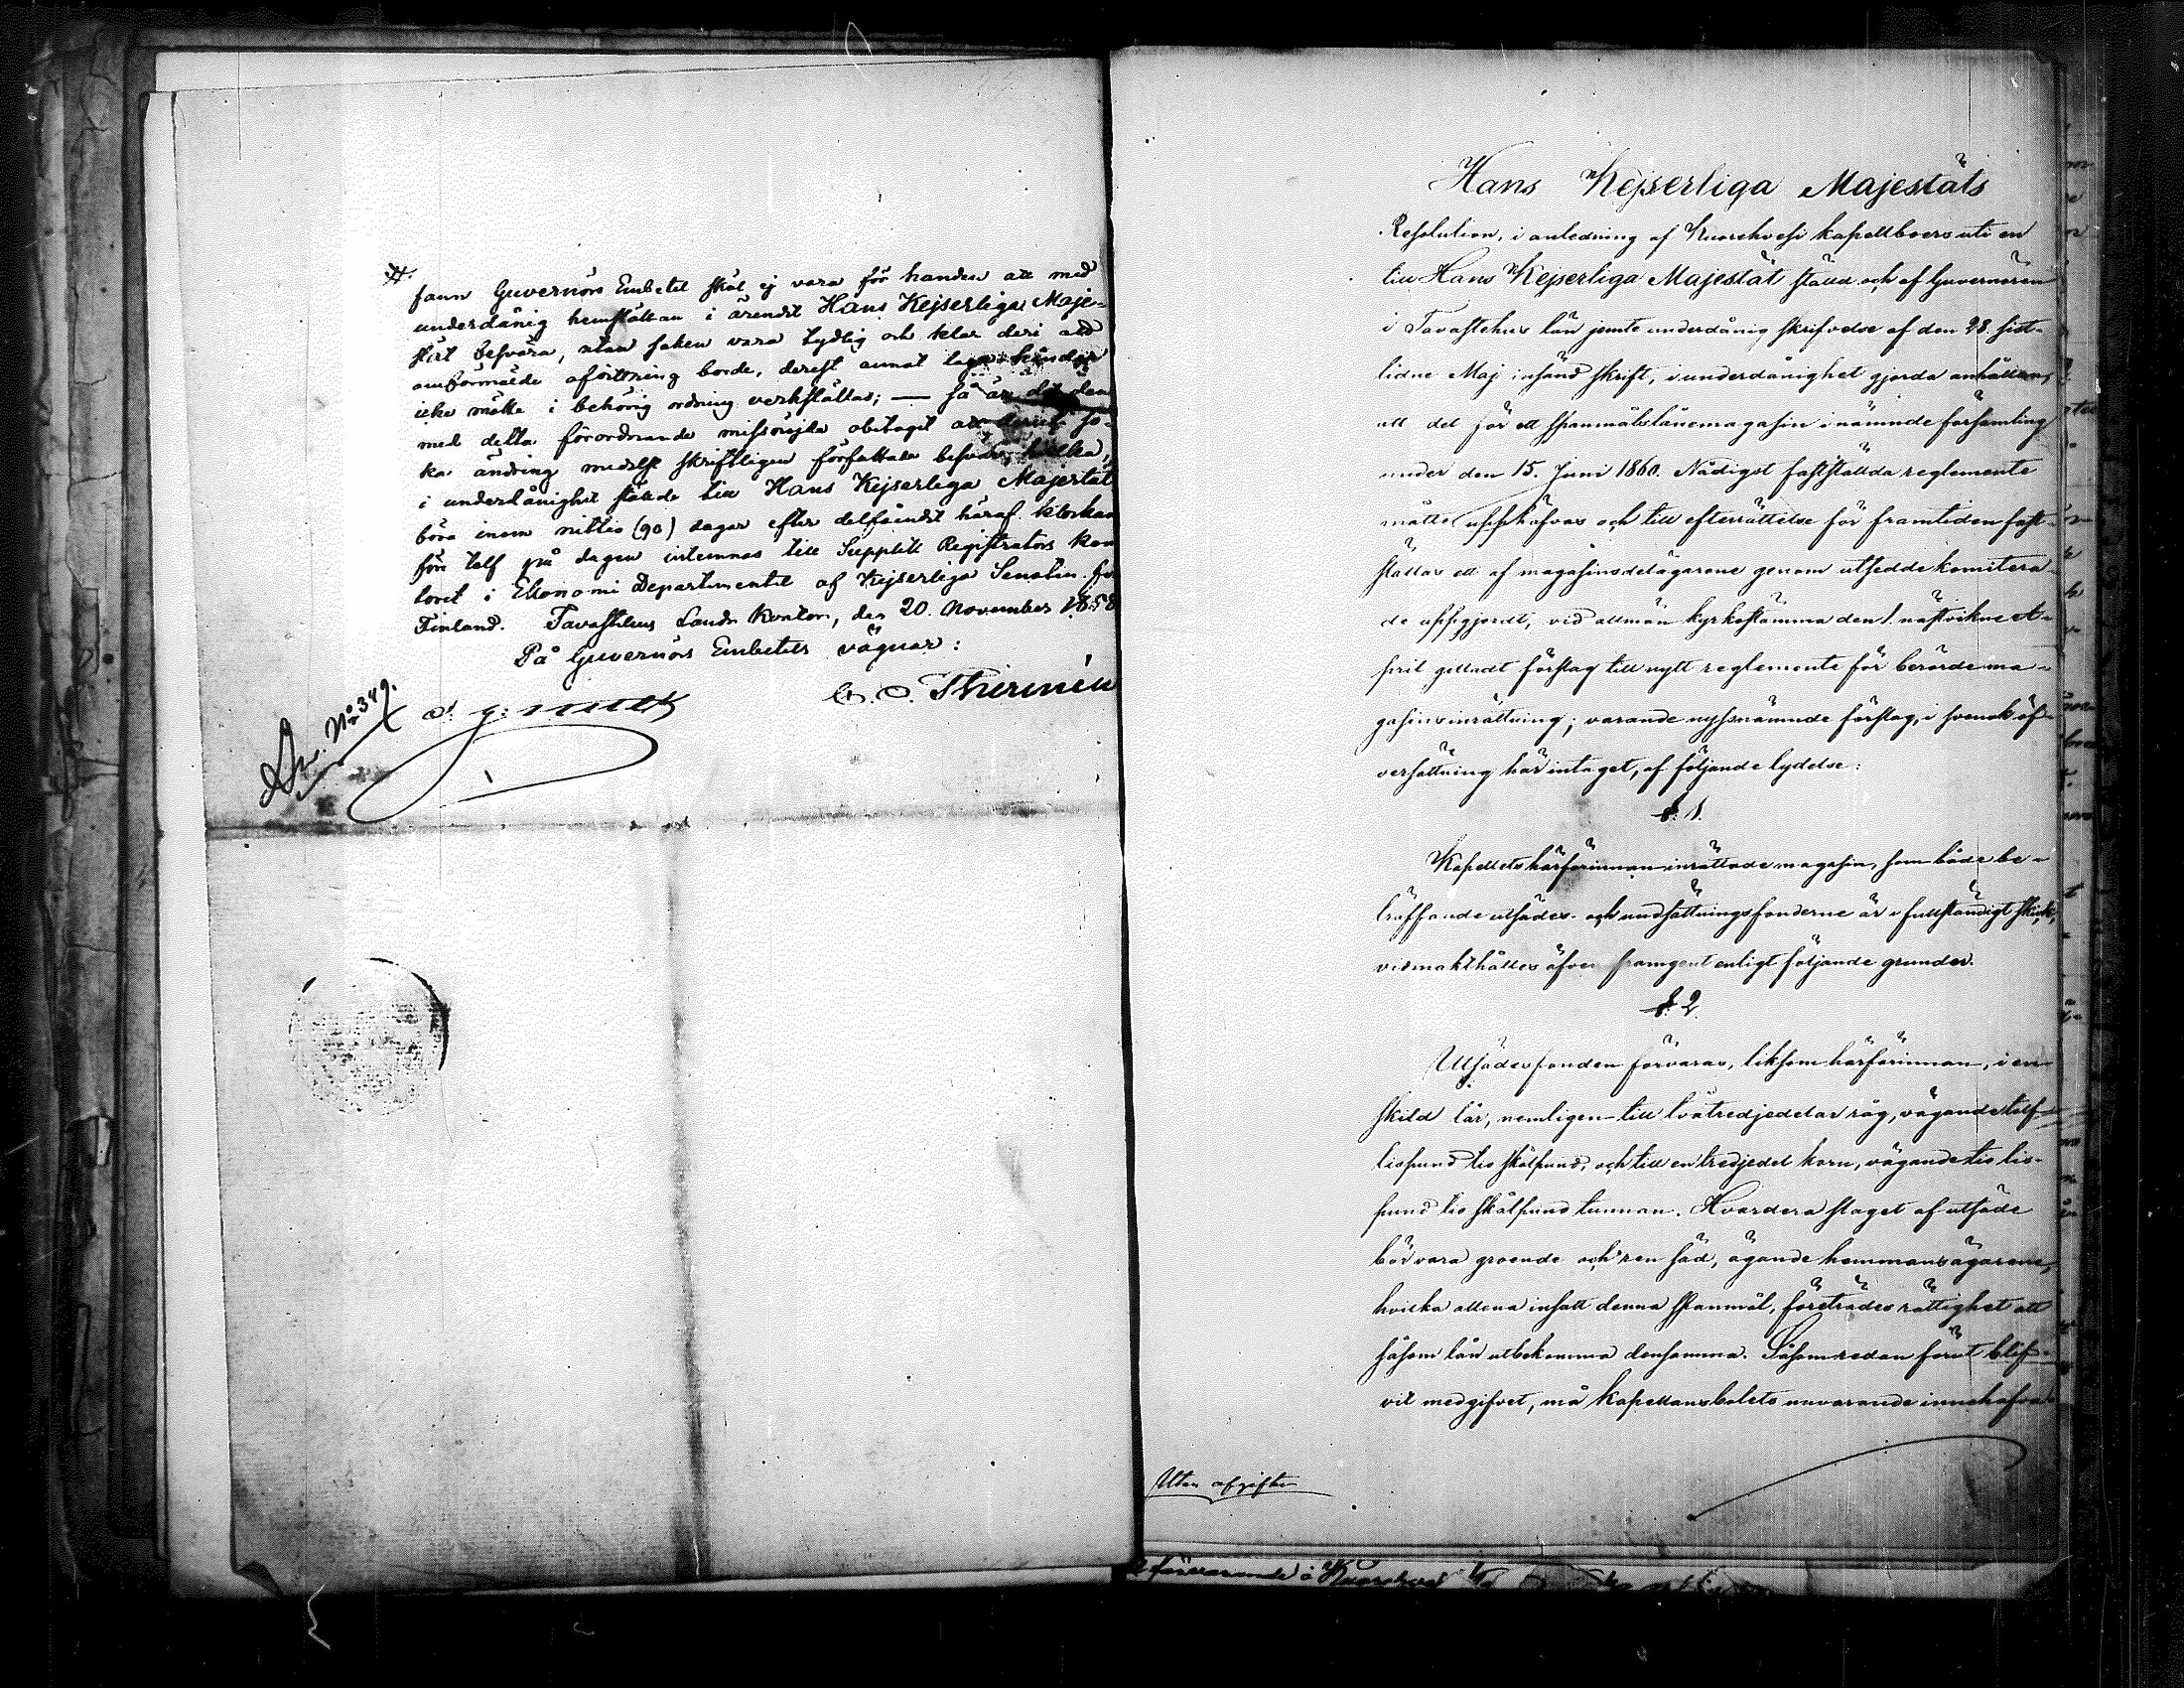 fann Guvernörs Embetet skäl ej vara för handen att med
underdånig hemställan i ärendet Hans Kejserliga Maje-
stät besvära, utan saken vara tydlig och klar deri att
omförmälde afsöndring borde, derest annat laga hinder
icke mötte i behörig ordning verkställas; — så är det den
med detta förordnande missnöjde obetaget att deruti sö-
ka ändring medelst skriftligen författade besvär, hvilka,
i underdånighet stälde till Hans Kejserliga Majestät
böra inom nittio (90) dagar efter delfåendet häraf klockan
före tolf på dagen inlemnas till Supplik Registrators kon
toret i Ekonomi Departementet af Kejserliga Senaten för
Finland. Tavastehus Lands Kontor, den 20. November 1858
På Guvernörs Embetets vägnar:
C. O. Thermén
No 349.
Hans Kejserliga Majestäts
Resolution, i anledning af Kuorehvesi kapellboers uti en
till Hans Kejserliga Majestät stäld och af Guvernören
i Tavastehus län jemte underdånig skrifvelse af den 28. sist-
lidne Maj insänd skrift, i underdånighet gjorda anhållan,
att det för ett spanmålslånemagasin i nämnde församling
under den 15. Juni 1860. Nådigst fastställda reglemente
måtte upphäfvas och till efterrättelse för framtiden fast-
ställas ett af magasinsdelägarene genom utsedde komitera-
de uppgjordt, vid allmän kyrkostämma den 1. nästvikne A-
pril gilladt förslag till nytt reglemente för berörde ma-
gasinsinrättning; varande nyssnämnde förslag, i svensk öf-
versättning här intaget, af följande lydelse:
§. 1.
Kapellets härförinnan inrättade magasin, som både be-
träffande utsädes- och undsättningsfonderne är i fullständigt skick,
vidmakthålles äfven framgent enligt följande grunder.
§. 2.
Utsädesfonden förvaras, liksom härförinnan, i en
skild lår, nemligen till två tredjedelar råg, vägande tolf
lispund tio skålpund, och till en tredjedel korn, vägande tio lis-
pund tio skålpund tunnan. Hvardera slaget af utsäde
bör vara groende och ren säd, ägande hemmansägarene,
hvilka allena insatt denna spanmål, företrädes rättighet att
såsom lån utbekomma densamma. Såsom redan förut blif-
vit medgifvet, må kapellansbolets nuvarande innehafva-
Utan afgifter